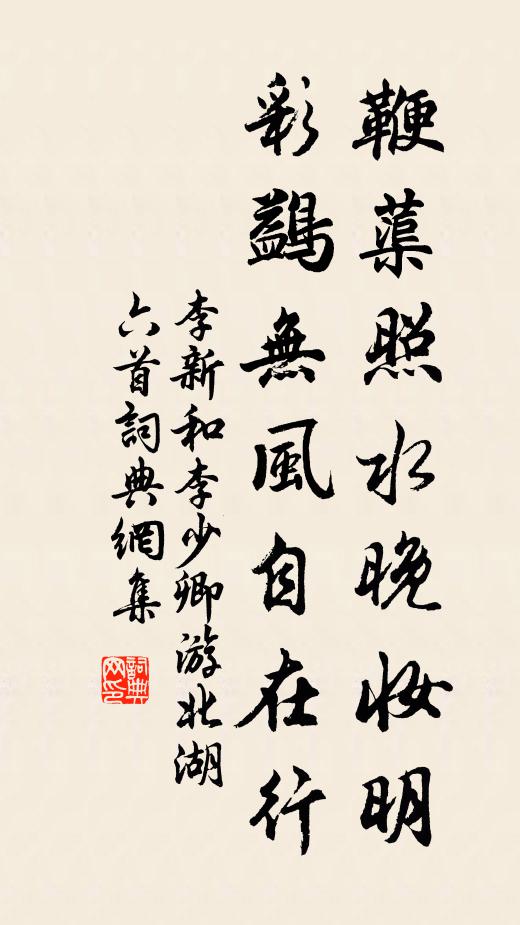 鞭蕖照水晚妆明
彩鷁無風自在行
李新和李少卿游北湖
六首詞典網集
詞典
网印